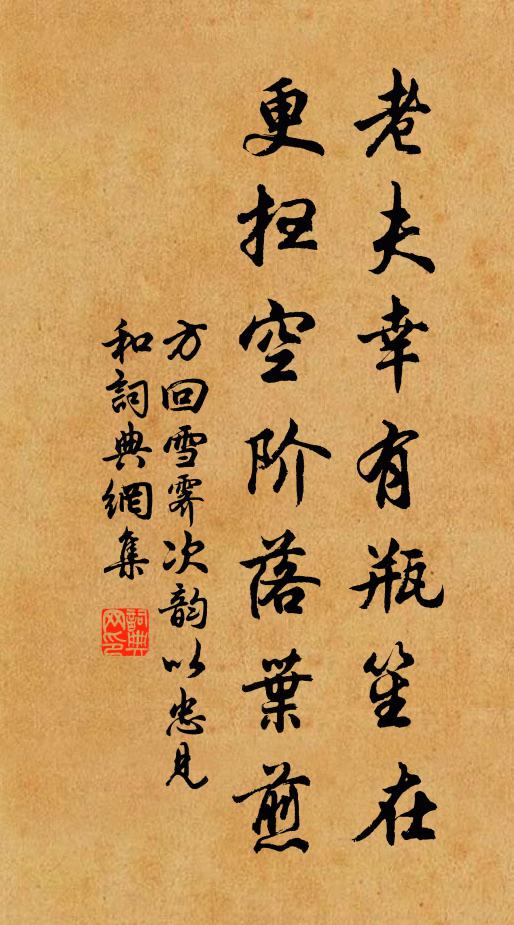 老夫幸有瓶笙在
更扫空阶落葉煎
方回雪霁次韵以忠见
和詞典網集
詞典网印